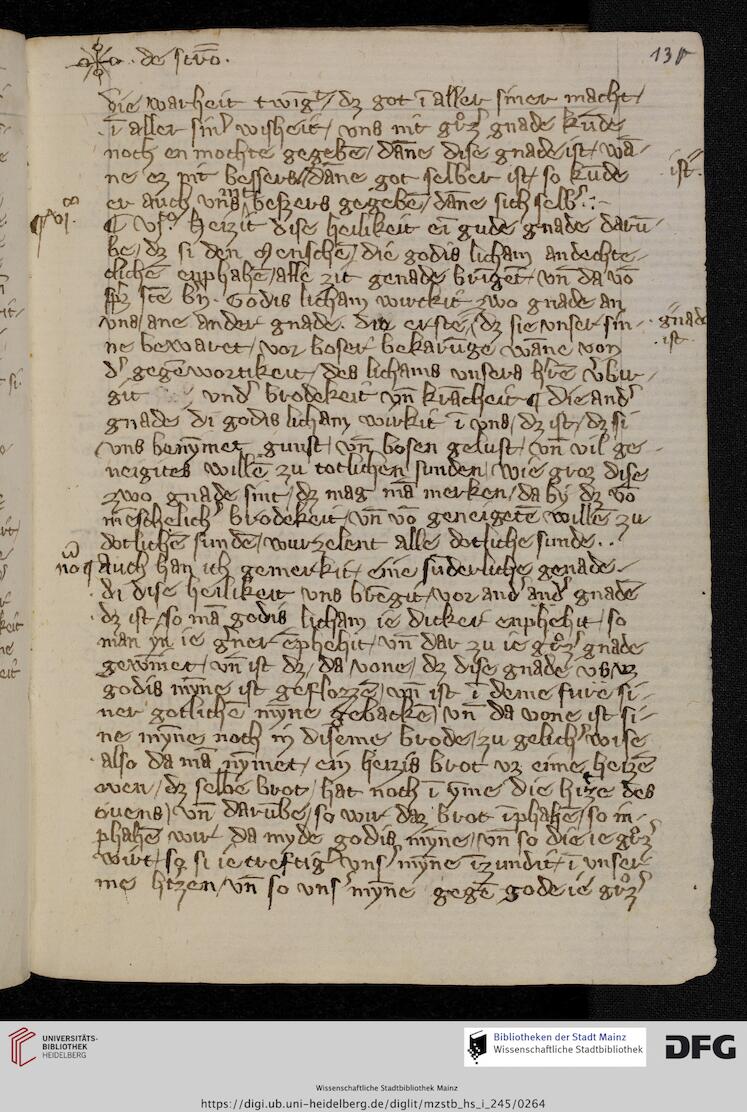 . de scr̄o.
130
die warheit twīgt / dz got ī aller siner macht /
ī aller sinʼ wisheit / vns nit grozʼ gnade kūde
noch en mochte gegebē / dāne dise gnade ist / wā-
ne ez nit bessers / dāne got selber ist / so kūde
ist
er auch vns nit beszers gegebē / dāne sich selbʼ.
¶ vi.
¶ heizit dise heilikeit ei gude gnade darū-
be / dz si den menschē / die godis licham andechte-
clichē enphahē / alle zit genade brīgēt / vn̄ da vō
godis licham wirckit zwo gnade an
vns / ane ander gnade. die erste / dz sie vnser sin-
gnade
ist
ne bewaret / vor boser bekarūge wāne von
dʼ gegēwortikeit / des lichams vnsers hrē vʼbir-
git vndʼ brodekeit vn̄ krācheit ¶ die andʼ
gnade di godis licham wirkit ī vns / dz ist / dz si
vns benȳmet gunst / vn̄ bosen gelust / vn̄ vil ge-
neigites willē zu totlichen sunden / wie groz dise
zwo gnade sint / dz mag mā merken / da by dz vō
mēschelichʼ brodekeit / vn̄ vō geneigetē willē zu
dotlichē sundē / wurzelent alle dotliche sunde..
nō ¶ auch han ich gemerkit / eine sūderliche genade.
di dise heilikeit vns brēgit / vor andʼ andʼ gnadē
dz ist / so mā godis licham ie dicker enphehit / so
man yn ie gʼner ēphehit / vn̄ dar zu ie grozʼ gnade
gewīnet / vn̄ ist dz / da vone / dz dise gnade vsz
godis mȳne ist geflozzē / vn̄ ist ī deme fure si-
ner gotlichē mȳne gebackē / vn̄ da vone ist si-
ne mȳne noch in diseme brode / zu gelichʼ wise
also da mā nȳmet / ein heizis brot vz eime heizē
oven / dz selbe brot / hat noch ī yme die hize des
ovens / vn̄ darūbe / so wir daz brot īphahē / so in-
phahē wir da myde godis mȳne / vn̄ so die ie grozʼ
wirt / so si ie creftigʼ vnsʼ mȳne īzundit / ī vnser-
me hʼtzen / vn̄ so vnsʼ mȳne gegē gode ie grozʼ
UNIVERSITÄTS-
BIBLIOTHEK
HEIDELBERG
Bibliotheken der Stadt Mainz
Wissenschaftliche Stadtbibliothek
DFG
Wissenschaftliche Stadtbibliothek Mainz
https://digi.ub.uni-heidelberg.de/diglit/mzstb_hs_i_245/0264